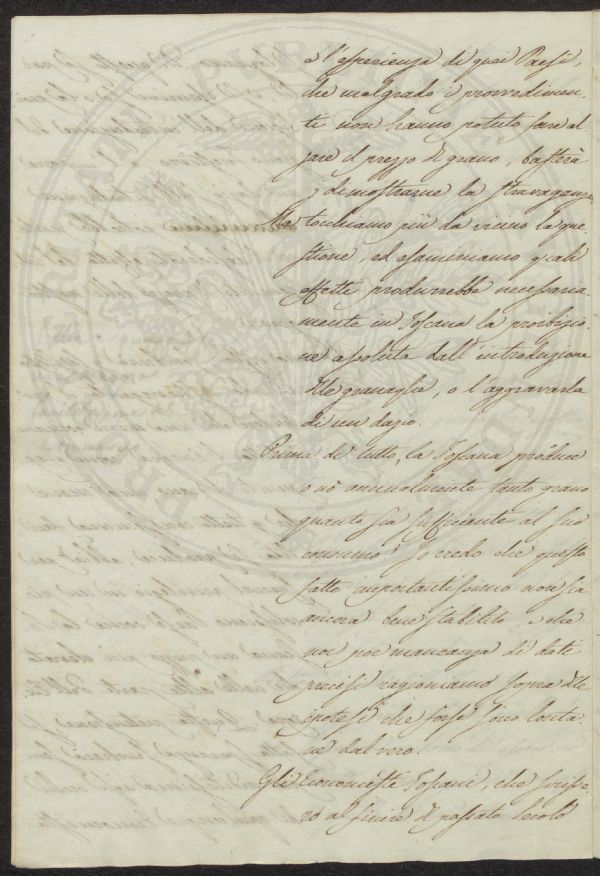 e l'esperienza di quei Paesi,
che malgrado i provvedimen-
ti non hanno potuto fare al-
zare il prezzo di grano, basterà
p dimostrarne la stravaganza
Ma tocchiamo più da vicino la que-
stione, ed esaminiamo quali
effetti produrrebbe necessaria-
mente in Toscana la proibizio-
ne assoluta dall'introduzione
dlle granaglie, o l'aggravarla
di un dazio.
Prima di tutto, la Toscana produce
o nò annualmente tanto grano
quanto sia sufficiente al suo
consumo? Io credo che questo
fatto importantissimo non sia
ancora bene stabilito e che
noi per mancanza di dati
precisi ragioniamo sopra dlle
ipotesi che forse sono lonta-
ne dal vero.
Gli Economisti Toscani, che scrisse-
ro al finire dl passato Secolo